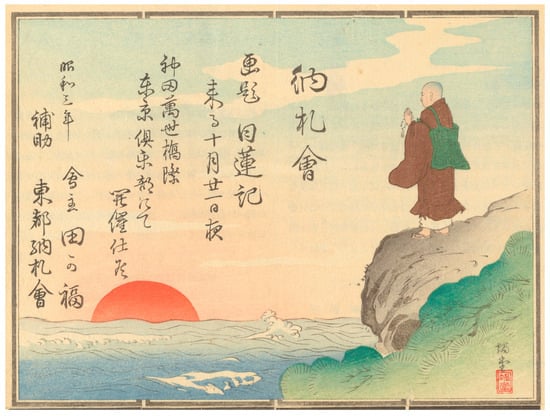 納札會
画題 日蓮記
来る十月廿一日夜
神田萬世橋際
東京倶楽部にて
開催仕候
昭和三年
會主 田 福
補助 東都納札會